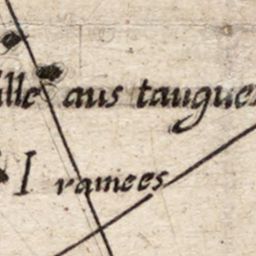 ille aus taugues
I ramees